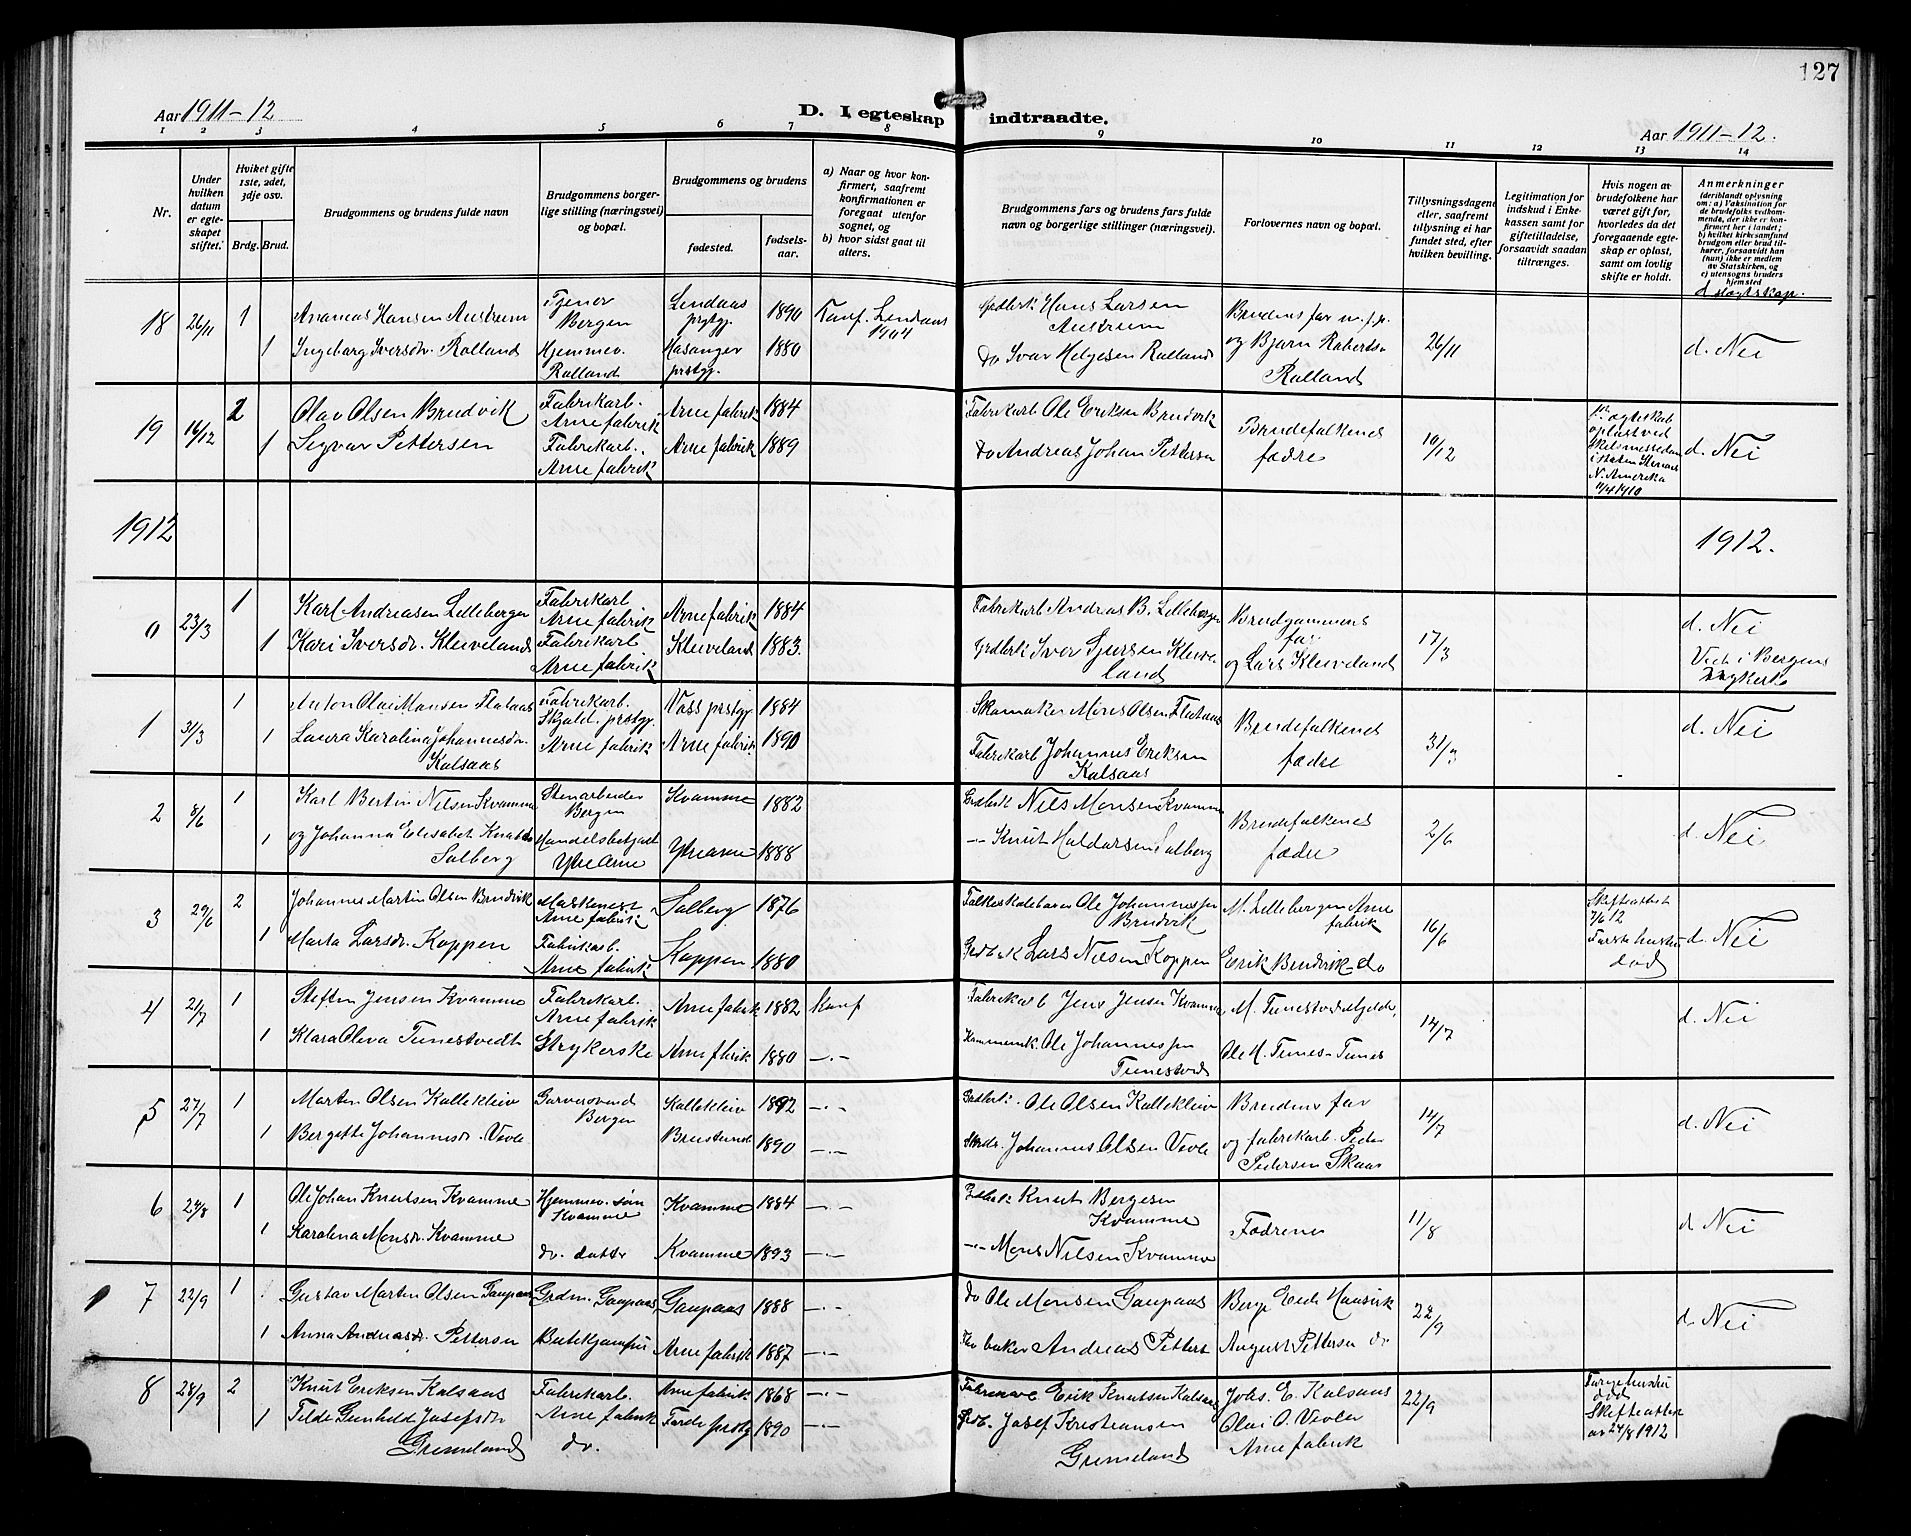 127
Aar 1911-12
D. I egteskap indtraadte.
Aar 1911-12.
1 2 3 4 5 6 7 8 9 10 11 12 13 14
Nr.
Under hvilken datum er egteskapet stiftet.
Hviket gifte 1ste, 2det, 3dje osv.
Brdg. Brud.
Brudgommens og brudens fulde navn
Brudgommens borgerlige stilling (næringsvei) og bopæl.
Brudgommens og brudens
fødested.
fødselsaar.
a) Naar og hvor konfirmert, saafremt konfirmationen er foregaat utenfor sognet, og
b) hvor sidst gaat til alters.
Brudgommens fars og brudens fars fulde navn og borgerlige stillinger (næringsvei).
Forlovernes navn og bopæl.
Tillysningsdagene eller, saafremt tillysning ei har fundet sted, efter hvilken bevilling.
Legitimation for indskud i Enkekassen samt for giftetilladelse, forsaavidt saadan tiltrænges.
Hvis nogen av brudefolkene har været gift for, hvorledes da det foregaaende egteskap er opløst, samt om lovlig skifte er holdt.
Anmerkninger (deriblandt oplysning om: a) Vaksination for de brudefolks vedkommende, der ikke er konfirmert her i landet; b) hvilket kirkesamfund brudgom eller brud tilhører, forsaavidt han (hun) ikke er medlem av Statskirken, og c) utensogns bruders hjemsted
d slegtskap.
18 26/11 1 Andreas Hansen Austrum Tjener Bergen Lindaas prstgj. 1890 Konf. Lindaas 1904 Grdbr. Hans Larsen Austrum Brudens far m.f.p. 26/11 d. Nei
1 Ingeborg Iversdr. Rolland Hjemmev. Rolland Hasanger prstgj. 1880 do Ivar Helgesen Rolland og Bjarn Robertsn Rolland
19 16/12 2 Olav Olsen Brudvik Fabrikarb. Arne fabrik Arne fabrik 1884 Fabrikarb Ole Eriksen Brudvik Brudefolkenes fædre 10/12 1ste egteskab opløst ved skilsmissedom i staten N. Amerika 11/4 1910 d. Nei
1 Sigvar Pettersen Fabrikarb. Arne fabrik Arne fabrik 1889 do Andreas Johan Pettersen
1912
1912.
0 23/3 1 Karl Andreasen Lilleberger Fabrikarb Arne fabrik Arne fabrik 1884 Fabrikarb Andreas B. Lilleberger Brudgommens far 17/3 d. Nei
1 Kari Iversdr. Kleiveland Fabrikarb Arne fabrik Kleiveland 1883. Grdbrk Iver Sjursen Kleiveland og Lars Kleiveland Viet i Bergens Nykirke
1 31/3 1 Anton Olai Monsen Flataas Fabrikarb. Skjold. prstgj. Voss prstgj. 1884 Skomaker Mons Olsen Flataas Brudefolkenes fædre 31/3 d. Nei
1 Laura Karolina Johannesdr. Kalsaas Arne fabrik Arne fabrik 1890 Fabrikarb Johannes Eriksen Kalsaas
2 8/6 1 Karl Bertin Nilsen Kvamme Stenarbeider Bergen Kvamme 1882 Grdbrk Nils Monsen Kvamme Brudefolkenes fædre 2/6 d. Nei
1 og Johanna Elisabet Knutsdr Solberg Handelsbetjent Ytre Arne Ytre Arne 1888 -"- Knut Haldorsen Solberg
3 29/6 2 Johannes Martin Olsen Brudvik Maskinist Arne fabrik Solberg 1876 Folkeskolelærer Ole Johannessen Brudvik M. Lilleberger Arne fabrik 16/6 Skifteattest 7/6 12 Første hustru død d. Nei
1 Marta Larsdr. Koppen Fabrikarb. Arne fabrik Koppen 1880 Grdbrk Lars Nilsen Koppen Erik Brudvik - do
4 2/7 1 Steffen Jensen Kvamme Fabrikarb. Arne fabrik Arne fabrik 1882 konf Fabrikarb Jens Jensen Kvamme M. Tunestvedt 14/7 d. Nei
1 Klara Oleva Tunestvedt Strykerske Arne fabrik 1880 -"- Ole Johannessen Tunestvedt Ole M. Tunes - Tunes
5 27/7 1 Martin Olsen Kallekleiv Garversvend Bergen Kallekleiv 1892 -"- Grdbrk. Ole Olsen Kallekleiv Brudens far 14/7 d. Nei
1 Bergette Johannesdr. Vevle 1890 -"- Johannes Olsen Vevle og fabrikarb. Peder Pedersen Skaar
6 24/8 1 Ole Johan Knutsen Kvamme Hjemmev. søn Kvamme Kvamme 1884 -"- Grdbrk Knut Bergesen Kvamme Fædrene 11/8 d Nei
1 Karolina Monsdr. Kvamme do. datter Kvamme 1893 -"- -"- Mons Nilsen Kvamme
7 22/9 1 Gustav Martin Olsen Gaupaas Grdm. Gaupaas Gaupaas 1888 -"- do Ole Monsen Gaupaas Berge 22/9 d. Nei
1 Anna Andreasdr. Pettersen Arne fabrik 1887 -"- Andreas Pettersen August Pettersen do
8 28/9 2 Knut Eriksen Kalsaas Fabrikarb. Arne fabrik Arne fabrik 1868 -"- Erik Knutsen Kalsaas Johs. E. Kalsaas 22/9 død Skifteattest av 24/8 1912
1 Tilda Gunhilde Josefsdr Grimeland do. Førde prstgj 1890 -"- Josef Kristiansen Grimeland Olai O. Vevle Arne fabrik